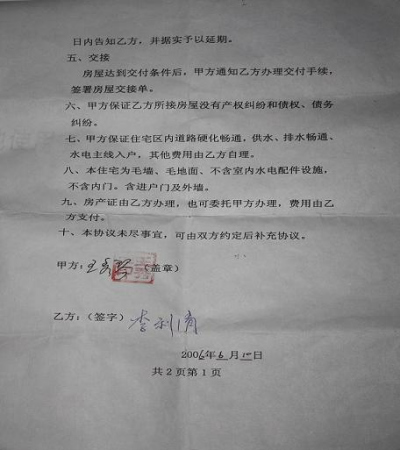 日内告知乙方，并据实予以延期。
五、交接
房屋达到交付条件后，甲方通知乙方办理交付手续，
签署房屋交接单。
六、甲方保证乙方所接房屋没有产权纠纷和债权、债务
纠纷。
七、甲方保证住宅区内道路硬化畅通，供水、排水畅通、
水电主线入户，其他费用由乙方自理。
八、本住宅为毛墙、毛地面、不含室内水电配件设施，
不含内门。含进户门及外墙。
九、房产证由乙方办理，也可委托甲方办理，费用由乙
方支付。
十、本协议未尽事宜，可由双方约定后补充协议。
甲方：王（盖章）
乙方：（签字）李利清
2006年6月10日
共2页第1页